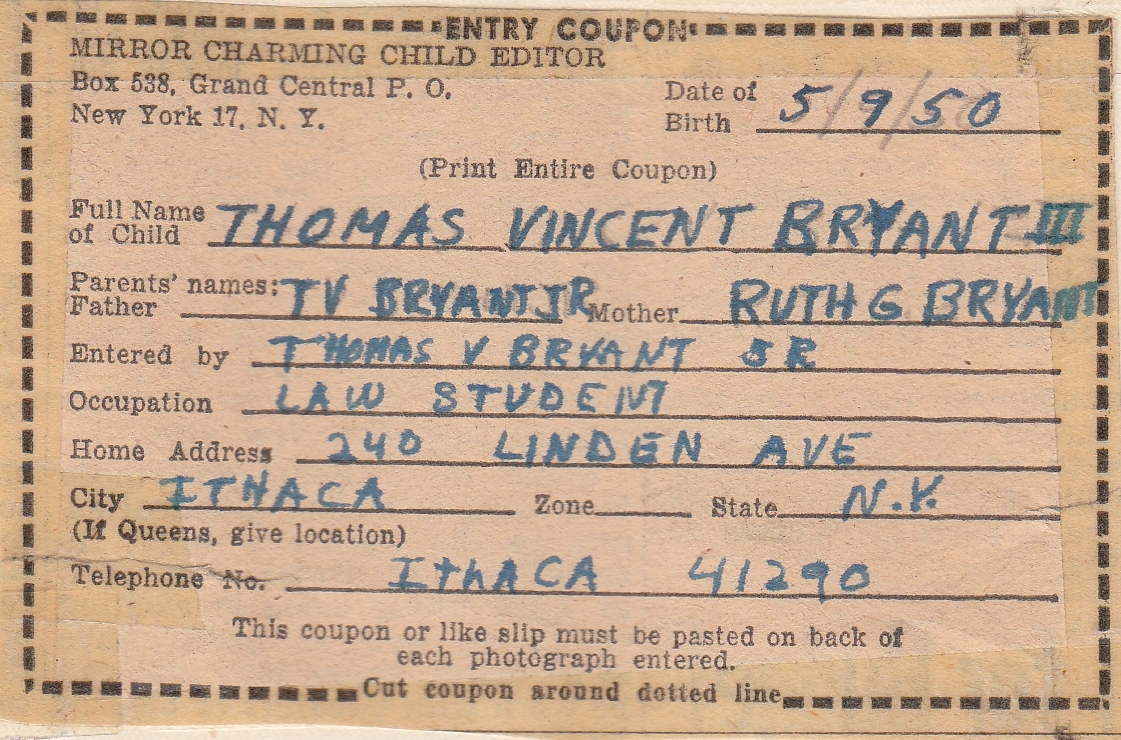 ENTRY COUPON
MIRROR CHARMING CHILD EDITOR
Box 538, Grand Central P. O.
New York 17, N. Y.
Date of Birth 5/9/50
(Print Entire Coupon)
Full Name of Child THOMAS VINCENT BRYANT III
Parents' names:
Father TV BRYANT JR Mother RUTH G BRYANT
Entered by THOMAS V BRYANT JR
Occupation LAW STUDENT
Home Address 240 LINDEN AVE
City ITHACA Zone State N.Y.
(If Queens, give location)
Telephone No. ITHACA 41290
This coupon or like slip must be pasted on back of
each photograph entered.
Cut coupon around dotted line